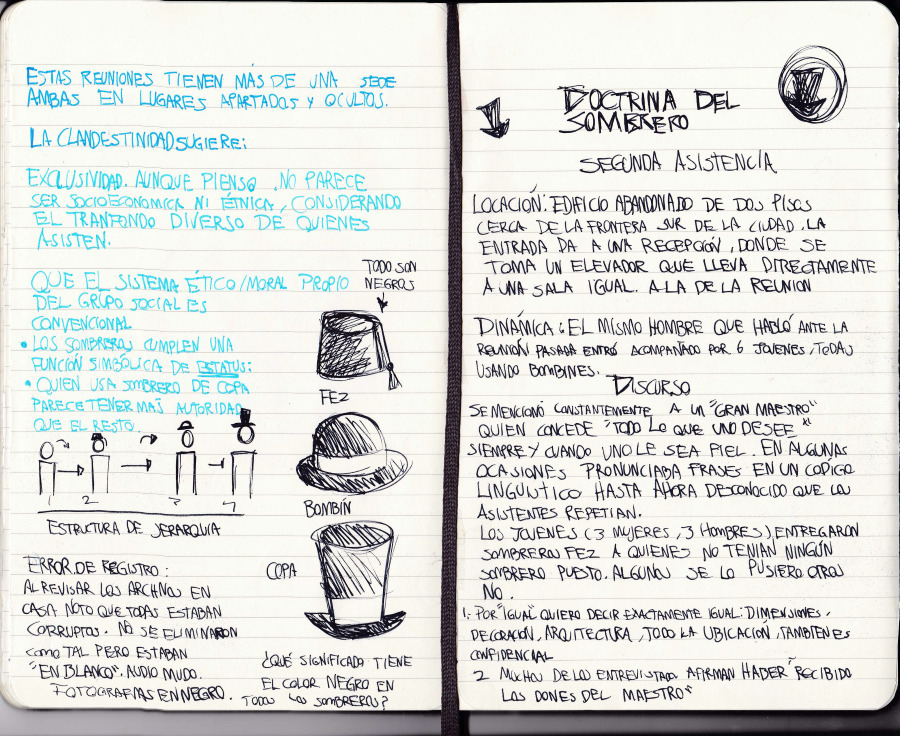 ESTAS REUNIONES TIENEN MÁS DE UNA SEDE
AMBAS EN LUGARES APARTADOS Y OCULTOS.
LA CLANDESTINIDAD SUGIERE:
EXCLUSIVIDAD. AUNQUE PIENSO, NO PARECE
SER SOCIOECONOMICA NI ÉTNICA, CONSIDERANDO
EL TRANFONDO DIVERSO DE QUIENES
ASISTEN.
QUE EL SISTEMA ÉTICO/MORAL PROPIO
DEL GRUPO SOCIAL ES
CONVENCIONAL
• LOS SOMBREROS CUMPLEN UNA
FUNCIÓN SIMBÓLICA DE ESTATUS:
• QUIEN USA SOMBRERO DE COPA
PARECE TENER MAS AUTORIDAD
QUE EL RESTO.
2 3 4
ESTRUCTURA DE JERARQUIA
ERROR DE REGISTRO:
AL REVISAR LOS ARCHIVOS EN
CASA NOTO QUE TODAS ESTABAN
CORRUPTOS. NO SE ELIMINARON
COMO TAL PERO ESTABAN
"EN BLANCO". AUDIO MUDO.
FOTOGRAFIAS EN NEGRO.
TODO SON
NEGROS
FEZ
BOMBÍN
COPA
¿QUÉ SIGNIFICADO TIENE
EL COLOR NEGRO EN
TODOS LOS SOMBREROS?
DOCTRINA DEL
SOMBRERO
SEGUNDA ASISTENCIA
LOCACIÓN: EDIFICIO ABANDONADO DE DOS PISOS
CERCA DE LA FRONTERA SUR DE LA CIUDAD. LA
ENTRADA DA A UNA RECEPCIÓN, DONDE SE
TOMA UN ELEVADOR QUE LLEVA DIRECTAMENTE
A UNA SALA IGUAL. A LA DE LA REUNION
DINÁMICA: EL MISMO HOMBRE QUE HABLÓ ANTE LA
REUNIÓN PASADA ENTRÓ ACOMPAÑADO POR 6 JOVENES, TODAS
USANDO BOMBINES.
DISCURSO
SE MENCIONÓ CONSTANTEMENTE A UN "GRAN MAESTRO"
QUIEN CONCEDE "TODO LO QUE UNO DESEE"
SIEMPRE Y CUANDO UNO LE SEA FIEL. EN ALGUNAS
OCASIONES PRONUNCIABA FRASES EN UN CODIGO
LINGUISTICO HASTA AHORA DESCONOCIDO QUE LOS
ASISTENTES REPETIAN.
LOS JOVENES (3 MUJERES, 3 HOMBRES) ENTREGARON
SOMBREROS FEZ A QUIENES NO TENIAN NINGÚN
SOMBRERO PUESTO. ALGUNOS SE LO PUSIERO OTROS
NO.
1. POR "IGUAL" QUIERO DECIR EXACTAMENTE IGUAL: DIMENSIONES,
DECORACIÓN, ARQUITECTURA, TODO LA UBICACIÓN, TAMBIEN ES
CONFIDENCIAL
2 MUCHOS DE LOS ENTREVISTADOS AFIRMAN HABER "RECIBIDO
LOS DONES DEL MAESTRO"